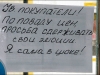 Ув покупатели!
По поводу цен
просьба сдерживать
свои эмоции.
Я сама в шоке!